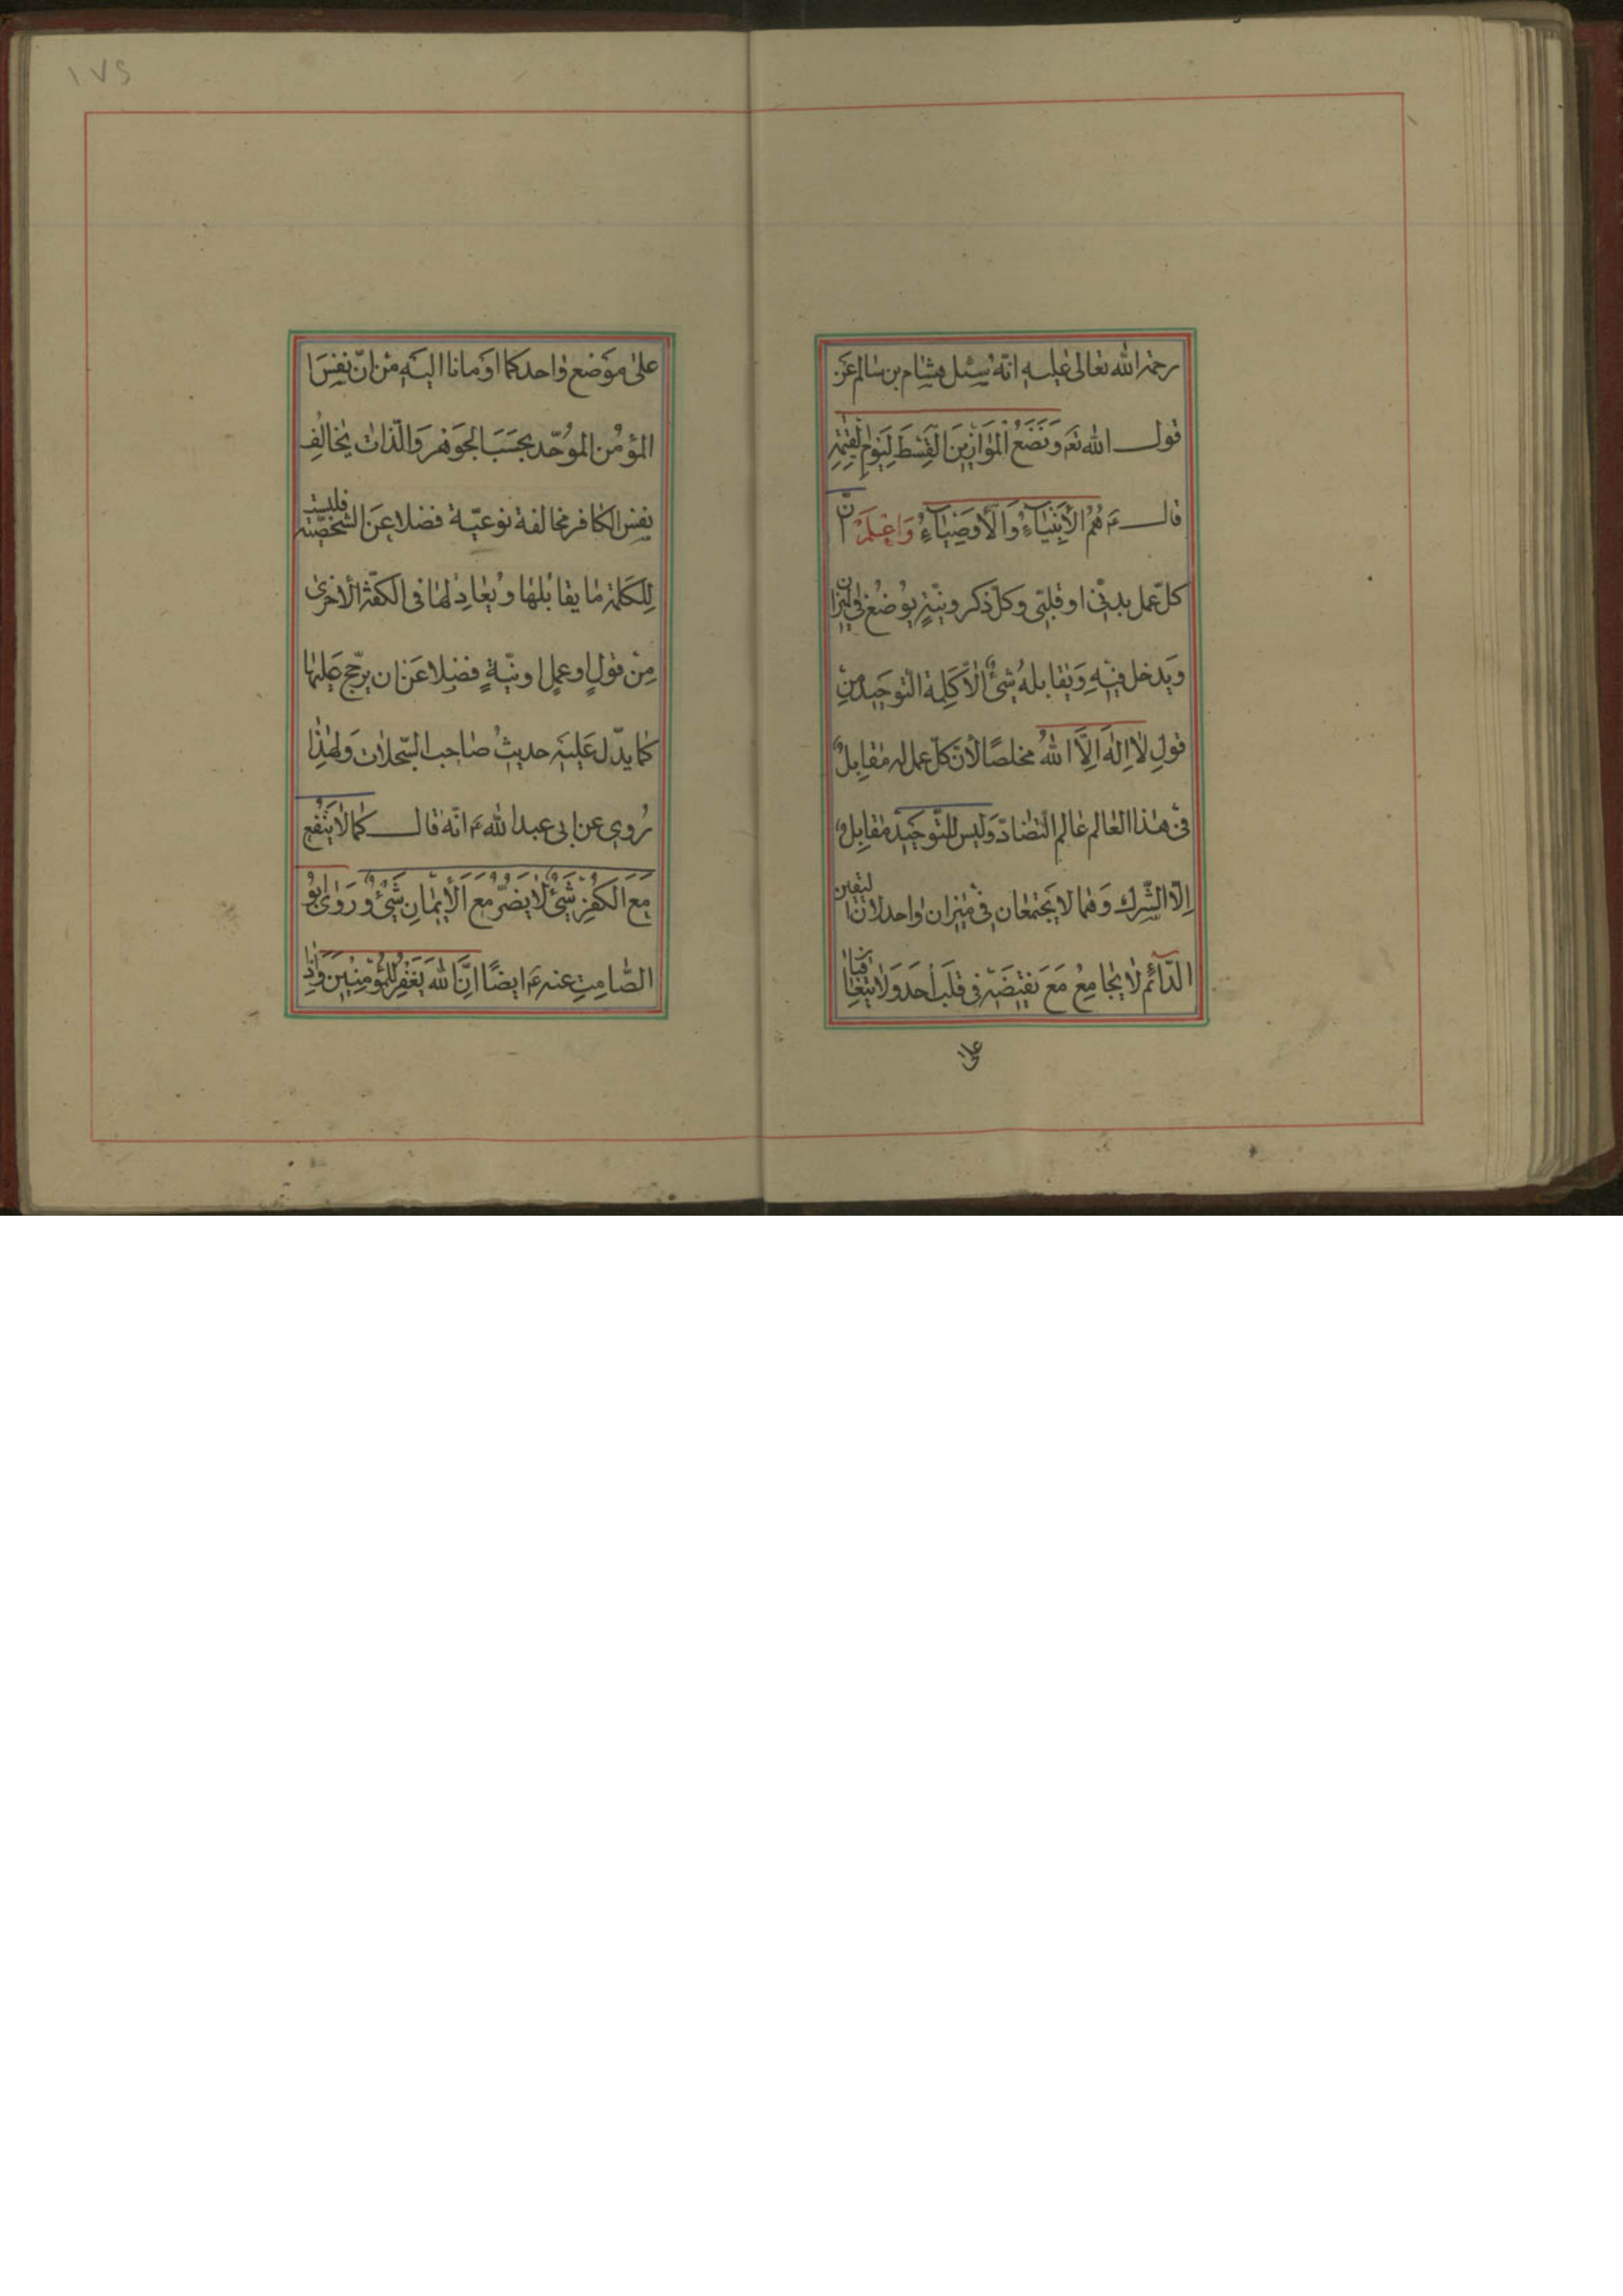 رحمة الله تعالى عليه انّه سئل هشام بن سالم عن
قول الله تع وَنَضَعُ الْمَوَازِينَ الْقِسْطَ لِيَوْمِ الْقِيٰمَةِ
قال ع هُمُ الأَنْبِيَاءُ وَالأَوْصِيَاءُ وَاعْلَمْ انّ
كلّ عمل بدنىّ او قلبىّ وكلّ ذكر ونيّةٍ يوُضعُ في الميزان
وَيدخل فيهِ وَيقابلهُ شئٌ الاّ كلِمة التّوحيد من
قولِ لاٰ اِلٰهَ اِلاَّ اللهُ مخلصًا لأنّ كلّ عمل له مقابِلٌ
فى هٰذا العٰالم عٰالم التّضادّ وَليس للتّوحيد مقابِلٌ
اِلاّ الشّرك وَهما لا يَجتمعٰان فِي ميزان وٰاحد لأنّ اليقين
الدّائم لٰا يجٰامِعُ مَعَ نقيضه فى قلب أحَد وَلاٰ يتعٰاقبٰان
على
١٧٥
علىٰ مَوضع وٰاحد كما اوَمأنا اليَهِ من انّ نفسَ
المؤمُن الموُحّد بحَسَب الجوَهر وَالذّات يخٰالِف
نفس الكٰافر مخالفة نوعيّة فضلا عَن الشخصيّة فليست
لِلكلمة مٰا يقابُلها وُيعٰادِلهٰا فى الكفّة الأخرىٰ
مِنْ قولٍ او عملٍ او نيّةٍ فضلا عَن ان يرجّح عَليهٰا
كمٰا يدّل عَليه حديثُ صٰاحب السّجلات وَلهٰذا
رُوي عن ابى عبد الله ع انّه قال كمٰا لاٰ يَنْفع
مَعَ الكفْرِ شَئٌ لاٰ يَضرّ مع الأيمٰانِ شَئٌ وَرَوىٰ ابُو
الصّامِتِ عنه ع ايضًا انَّ اللهَ يَغْفِرُ لِلْمُؤمِنِينَ وَاِنْ